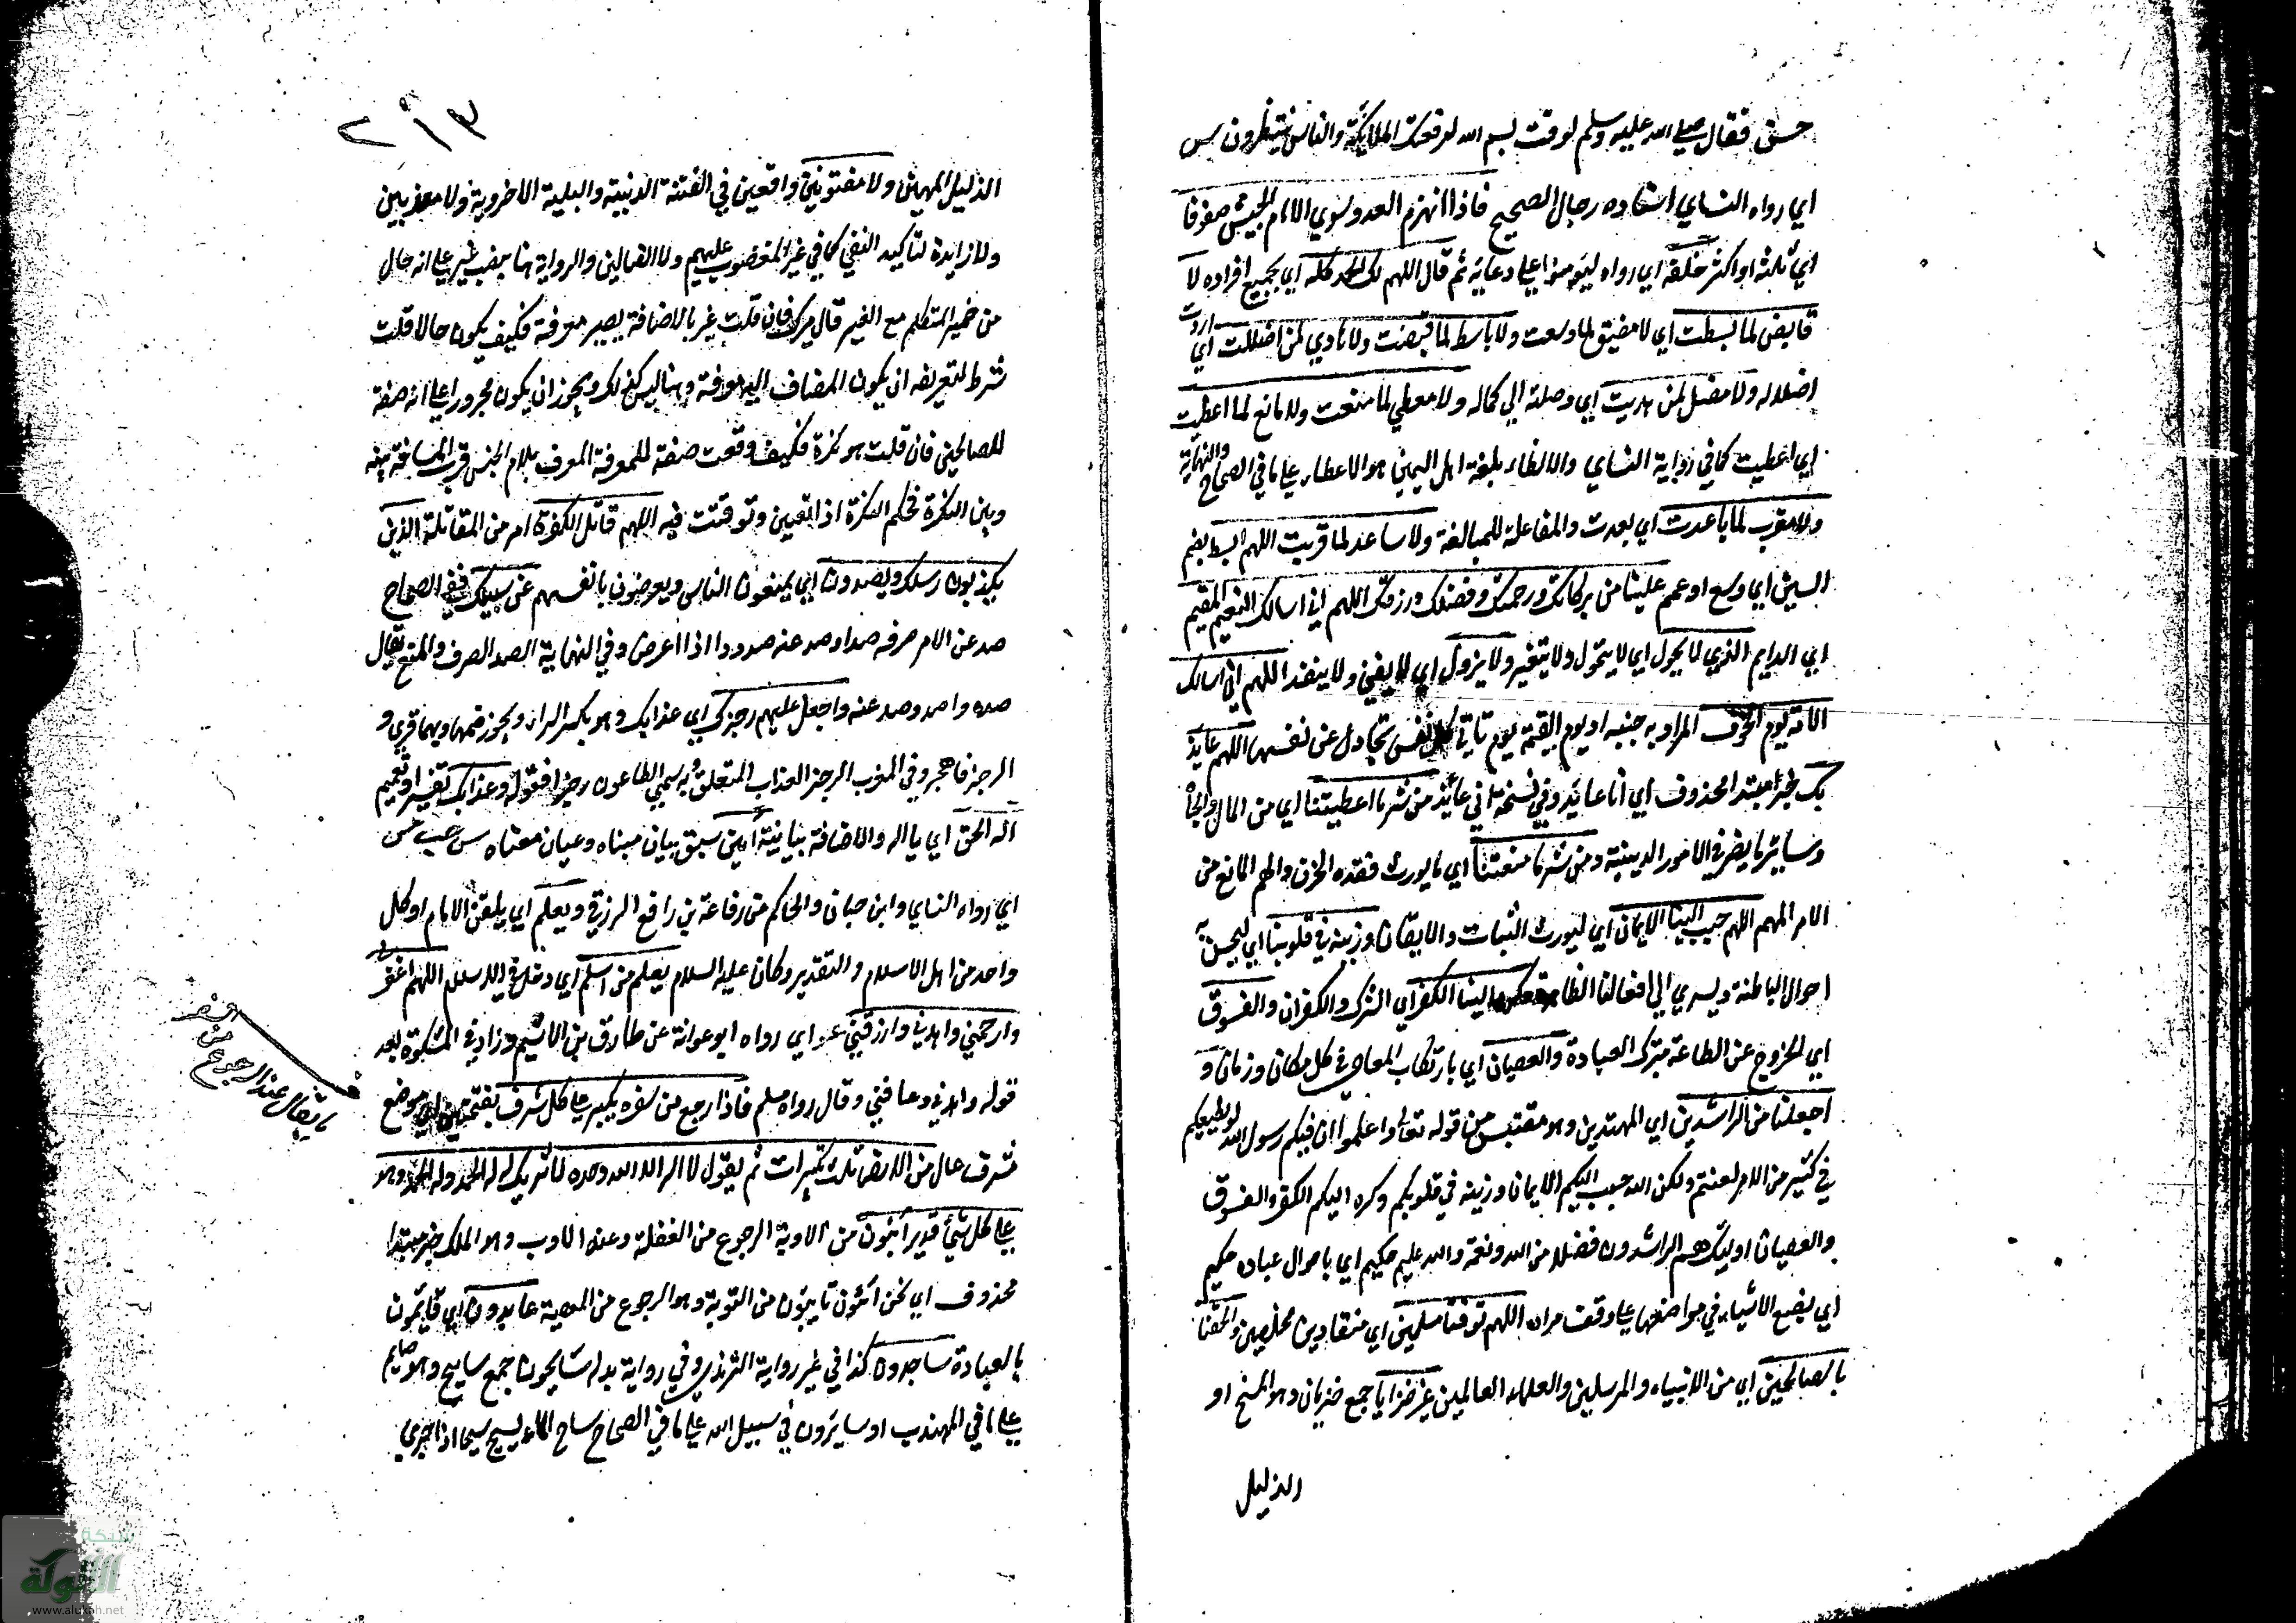 حسن فقال صلى الله عليه وسلم لو قلت بسم الله لرفعتك الملائكة والناس ينتظرون س
اي رواه النساي اسناده رجال الصحيح فاذا انهزم العدو لسوي الامام الجيش صفوفا
اي ثلثة او اكثر خلفه اي رواه ليؤمنوا علي دعايه ثم قال اللهم لك الحمد كله اي بجميع افراده لا
قابض لما بسطت اي لا مضيق لما وسعت ولا باسط لما قبضت ولا هادي لمن اضللت اي اردت
اضلاله ولا مضل لمن هديت اي وصلته الي كماله ولا معطي لما منعت ولا مانع لما اعطيت
اي اعطيت كما في رواية النساي والانطاء بلغة اهل اليمن هو الاعطاء علي ما في الصحاح والنهاية
ولا مقرب لما باعدت اي بعدت والمفاعلة للمبالغة ولا مباعد لما قربت اللهم ابسط بضم
السين اي وسع او عمم علينا من بركاتك ورحمتك وفضلك ورزقك اللهم اني اسالك النعيم المقيم
اي الدايم الذي لا يحول اي لا يتحول ولا يتغير ولا يزول اي لا يفني ولا ينفد اللهم اني اسالك
الامن يوم الخوف المراد به جنسه او يوم القيمة يوم تاتي كل نفس تجادل عن نفسها اللهم عايذ
بك خبر مبتدا محذوف اي انا عايذ وفي نسخة اني عايذ من شر ما اعطيتنا اي من المال والجاه
وساير ما يضر في الامور الدينية ومن شر ما منعتنا اي ما يورث فقده الحزن والهم المانع من
الامر المهم اللهم حبب الينا الايمان اي ليورث الثبات والايقان وزينه في قلوبنا اي ليحسن به
احوال الباطنة ويسري الي افعالنا الظاهرة وكره الينا الكفر اي الشرك والكفران والفسوق
اي الخروج عن الطاعة بترك العبادة والعصيان اي بارتكاب المعاصي في كل مكان وزمان و
اجعلنا من الراشدين اي المهتدين وهو مقتبس من قوله تعالي واعلموا ان فيكم رسول الله لو يطيعكم
في كثير من الامر لعنتم ولكن الله حبب اليكم الايمان وزينه في قلوبكم وكره اليكم الكفر والفسوق
والعصيان اوليك هم الراشدون فضلا من الله ونعمة والله عليم حكيم اي باحوال عباده حكيم
اي يضع الاشياء في مواضعها علي وفق مراده اللهم توفنا مسلمين اي منقادين مخلصين والحقنا
بالصالحين اي من الانبياء والمرسلين والعلماء العالمين غير خزايا جمع خزيان وهو المستح او
الذليل
٢١٣
الذليل المهين ولا مفتونين واقعين في الفتنة الدنيية والبلية الاخروية ولا معذبين
ولا زايدة لتاكيد النفي كما في غير المغضوب عليهم ولا الضالين والرواية هنا بنصب غير علي انه حال
من ضمير المتكلم مع الغير قال ميرك فان قلت غير بالاضافة يصير معرفة فكيف يكون حالا قلت
شرط لتعريفه ان يكون المضاف اليه معرفة وهنا ليس كذلك ويجوز ان يكون مجرورا علي انه صفة
للصالحين فان قلت هو نكرة فكيف وقعت صفة للمعرفة المعرف بلام الجنس قرب المسافة بينه
وبين النكرة فحكم النكرة اذا تعين وتوقتت فيه اللهم قاتل الكفرة امر من المقاتلة الذين
يكذبون رسلك ويصدون اي يمنعون الناس ويعرضون بانفسهم عن سبيلك ففي الصحاح
صد عن الامر صرفه صدا وصد عنه صدودا اذا اعرض وفي النهاية الصد الصرف والمنع يقال
صده واصده وصد عنه واجعل عليهم رجزك اي عذابك وهو بكسر الراء ويجوز ضمها وبهما قري و
الرجز فاهجر وفي المغرب الرجز العذاب المتعلق وبه سمي الطاعون رجزا فقوله وعذابك تفسير او تعميم
اله الحق اي يا اله والاضافة بيانية امين سبق بيان مبناه وعيان معناه س حب مس
اي رواه النساي وابن حبان والحاكم عن رفاعة بن رافع الزرقي ويعلم اي يلقن الامام او كل
واحد من اهل الاسلام والتقدير وكان عليه السلام يعلم من اسلم اي دخل في الاسلام اللهم اغفر لي
وارحمني واهدني وارزقني عو اي رواه ابو عوانة عن طارق بن الاشيم وزاد في المشكوة بعد
قوله واهدني وعافني وقال رواه مسلم فاذا رجع من سفره يكبر علي كل شرف بفتحتين اي موضع
شرف عال من الارض ثلث تكبيرات ثم يقول لا اله الا الله وحده لا شريك له له الملك وله الحمد وهو
علي كل شئ قدير ائبون من الاوبة الرجوع من الغفلة وعنه الاوب وهو الملك خبر مبتدا
محذوف اي نحن ائبون تايبون من التوبة وهو الرجوع من المعصية عابدون اي قايمون
بالعبادة ساجدون كذا في غير رواية الترمذي وفي رواية بدله سايحون جمع سايح وهو صايم
علي ما في المهذب او سايرون في سبيل الله علي ما في الصحاح ساح الماء يسيح سيحا اذا جري
ما يقال عند الرجوع من السفر
شبكة
الألوكة
www.alukah.net